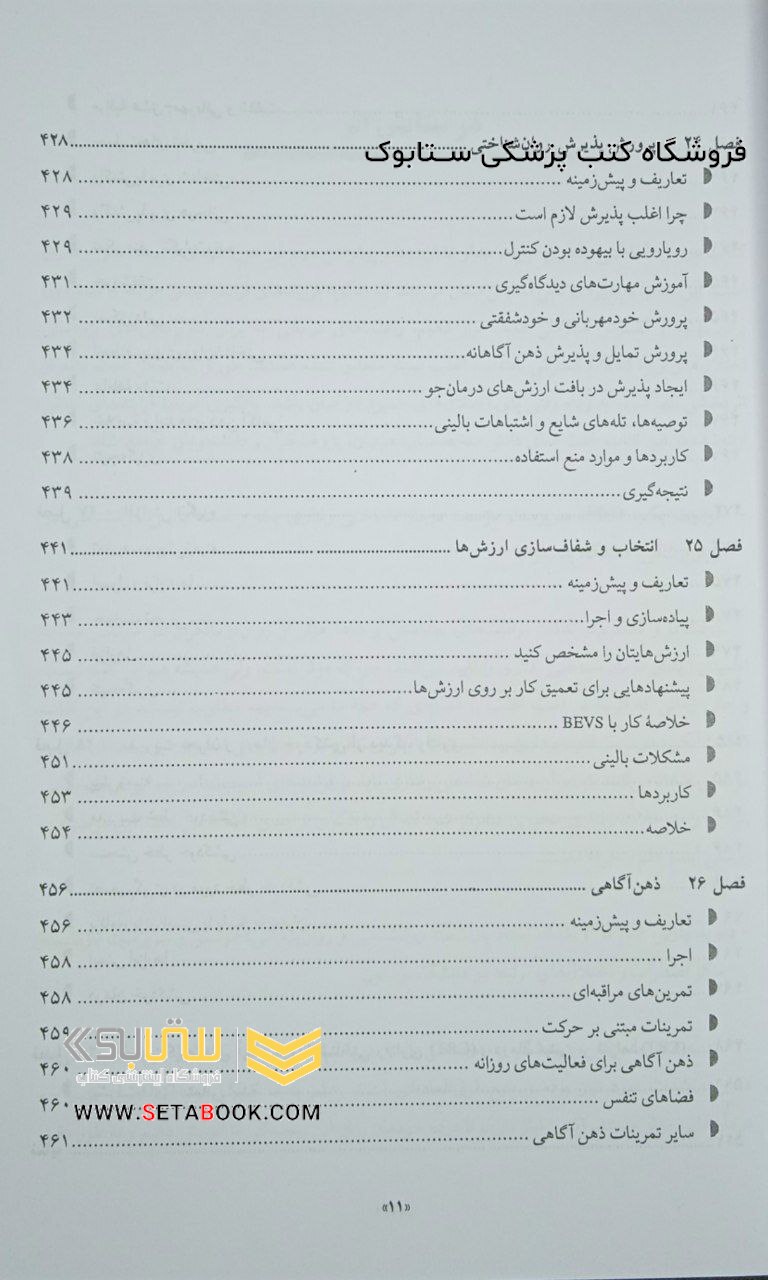 فصل ۲۴ پرورش پذیرش روان‌شناختی ۴۲۸
فروشگاه کتب پزشکی ستابوک
تعاریف و پیش‌زمینه ۴۲۸
چرا اغلب پذیرش لازم است ۴۲۹
رویارویی با بیهوده بودن کنترل ۴۲۹
آموزش مهارت‌های دیدگاه‌گیری ۴۳۱
پرورش خودمهربانی و خودشفقتی ۴۳۲
پرورش تمایل و پذیرش ذهن آگاهانه ۴۳۴
ایجاد پذیرش در بافت ارزش‌های درمان‌جو ۴۳۴
توصیه‌ها، تله‌های شایع و اشتباهات بالینی ۴۳۶
کاربردها و موارد منع استفاده ۴۳۸
نتیجه‌گیری ۴۳۹
فصل ۲۵ انتخاب و شفاف‌سازی ارزش‌ها ۴۴۱
تعاریف و پیش‌زمینه ۴۴۱
پیاده‌سازی و اجرا ۴۴۳
ارزش‌هایتان را مشخص کنید ۴۴۵
پیشنهادهایی برای تعمیق کار بر روی ارزش‌ها ۴۴۵
خلاصهٔ کار با BEVS ۴۴۶
مشکلات بالینی ۴۵۱
کاربردها ۴۵۳
خلاصه ۴۵۴
فصل ۲۶ ذهن‌آگاهی ۴۵۶
تعاریف و پیش‌زمینه ۴۵۶
اجرا ۴۵۸
تمرین‌های مراقبه‌ای ۴۵۸
تمرینات مبتنی بر حرکت ۴۵۹
ستابوک
ذهن آگاهی برای فعالیت‌های روزانه ۴۶۰
فروشگاه اینترنتی کتاب
فضاهای تنفس ۴۶۰
WWW.SETABOOK.COM
سایر تمرینات ذهن آگاهی ۴۶۱
«۱۱»